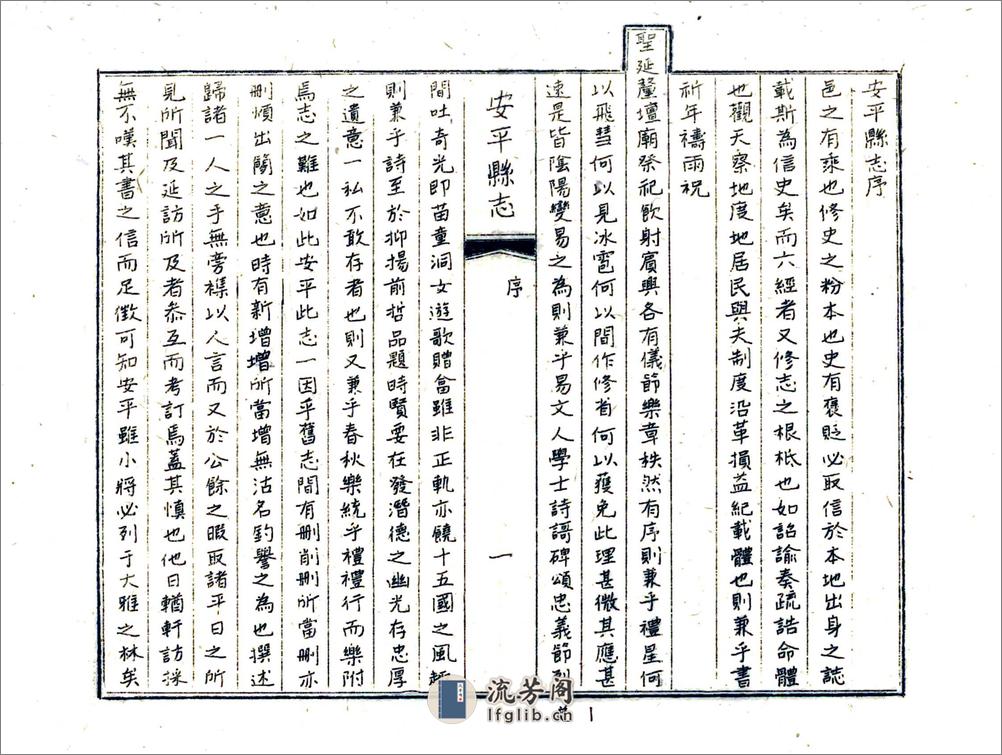 安平縣志序
邑之有乘也修史之粉本也史有褒貶必取信於本地出身之誌
載斯為信史矣而六經者又修志之根柢也如詔諭奏疏誥命體
也觀天察地度地居民與夫制度沿革損益紀載體也則兼乎書
祈年禱雨祝
聖延釐壇廟祭祀飲射賓興各有儀節樂章秩然有序則兼乎禮星何
以飛彗何以見冰雹何以間作修省何以獲免此理甚微其應甚
遠是皆陰陽變易之為則兼乎易文人學士詩謌碑頌忠義節烈
安平縣志
序
一
間吐奇光即苗童洞女遊歌贈畣雖非正軌亦饒十五國之風
則兼乎詩至於抑揚前哲品題時賢要在發潛德之幽光存忠厚
之遺意一私不敢存者也則又兼乎春秋樂統乎禮禮行而樂附
焉志之難也如此安平此志一因乎舊志間有删削删所當删亦
删煩出簡之意也時有新增增所當增無沽名釣譽之為也撰述
歸諸一人之手無旁襍以人言而又於公餘之暇取諸平日之所
見所聞及延訪所及者叅互而考訂焉蓋其慎也他日輶軒訪採
無不嘆其書之信而足徵可知安平雖小將必列于大雅之林矣
流芳阁
lfglib.cn
1